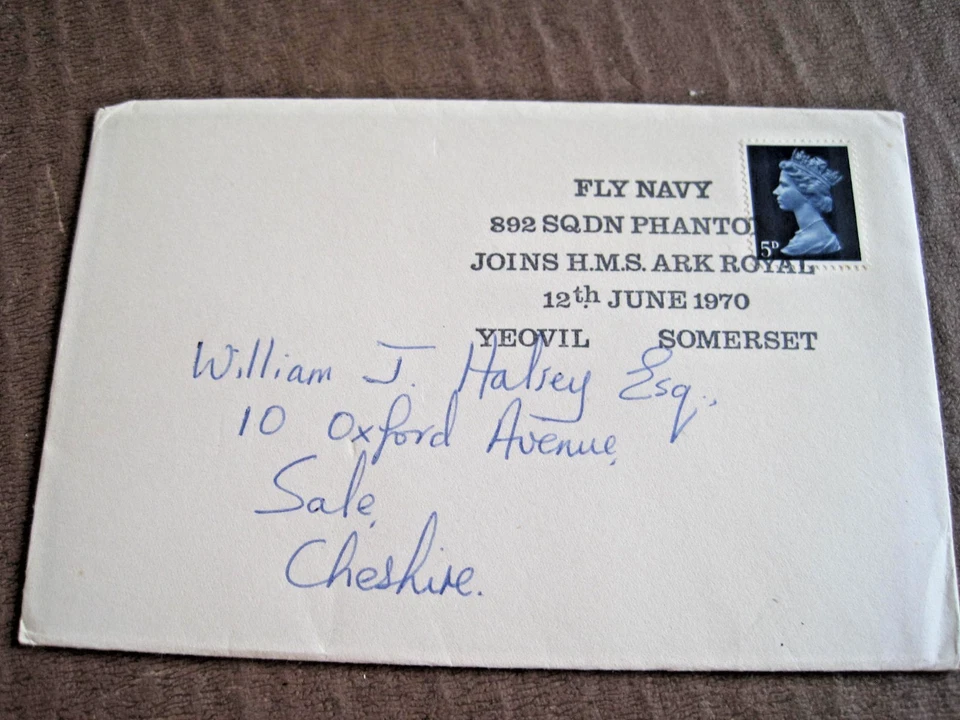 FLY NAVY
892 SQDN PHANTO
JOINS H.M.S. ARK ROYAL
12th JUNE 1970
YEOVIL SOMERSET
5D
William J. Halsey Esq.,
10 Oxford Avenue,
Sale,
Cheshire.